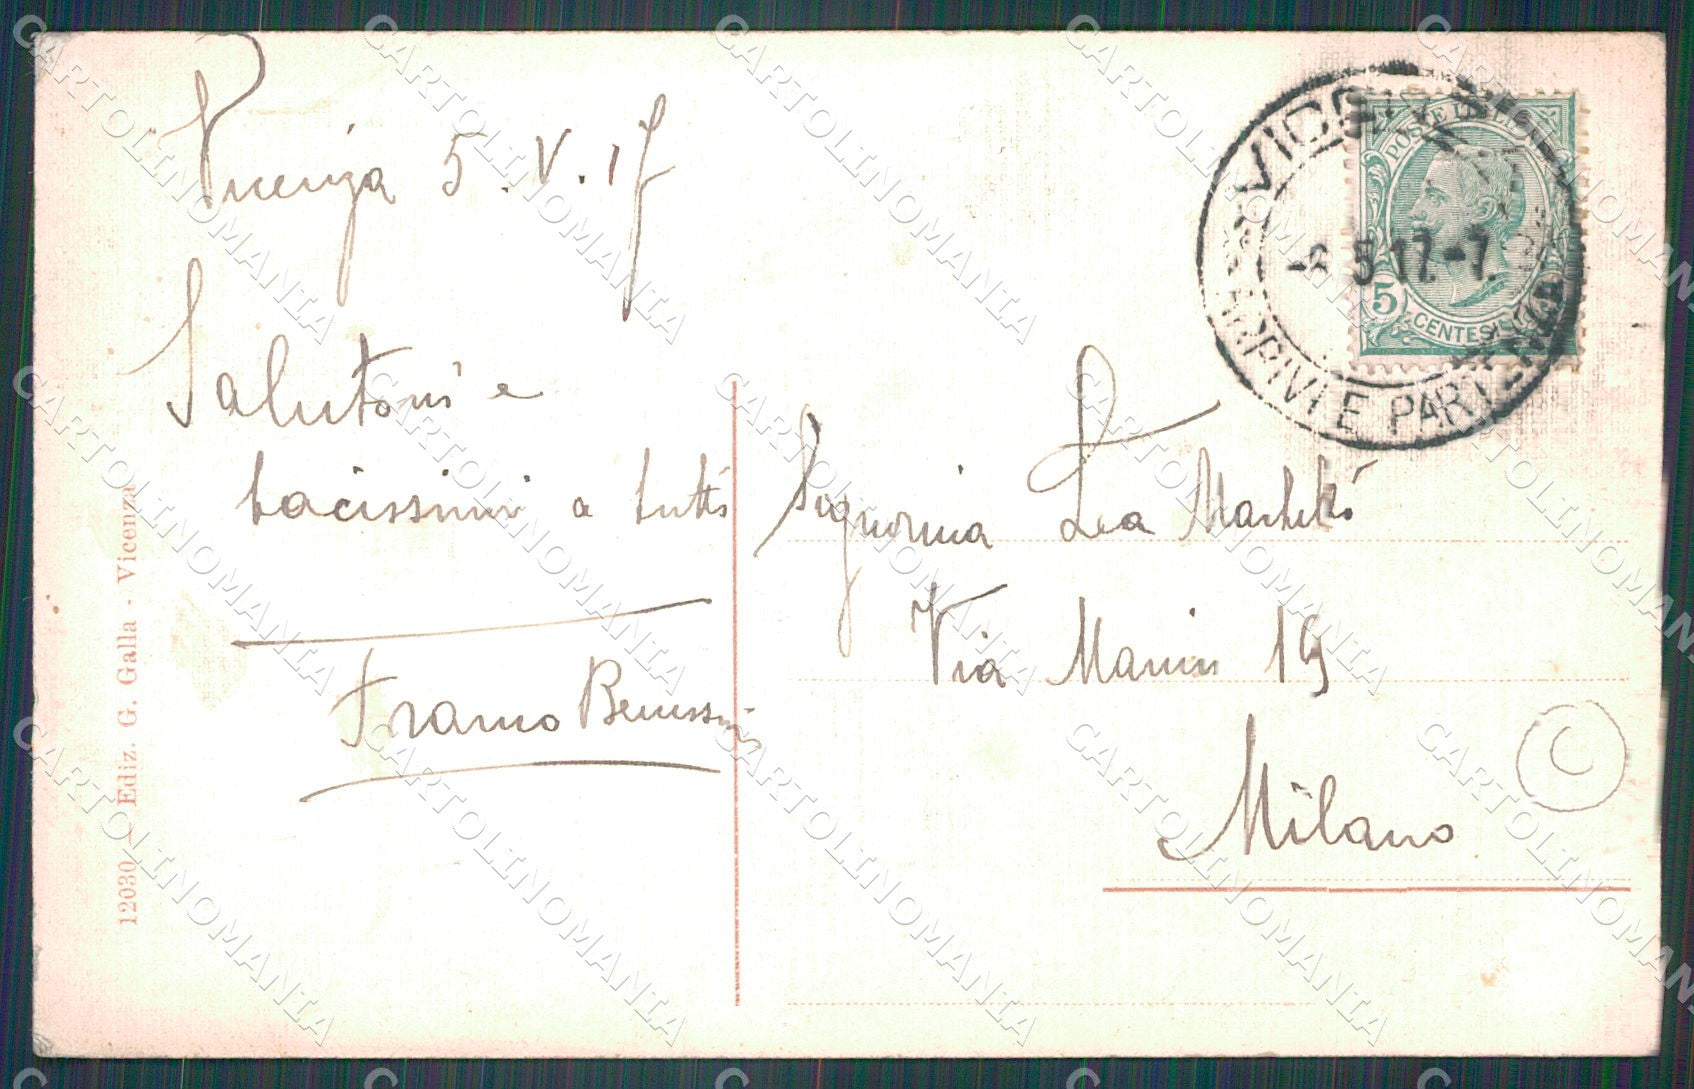 Vicenza 5.V.17
Salutoni e
bacissimi a tutti
Franco
Signorina Lea
Via Manin 19
Milano
12030 - Ediz. G. Galla - Vicenza
VICENZA
ARRIVI E PARTENZA
-6 5 17.-7
POSTE
5
CENTESIMI
C
CARTOLINOMANIA